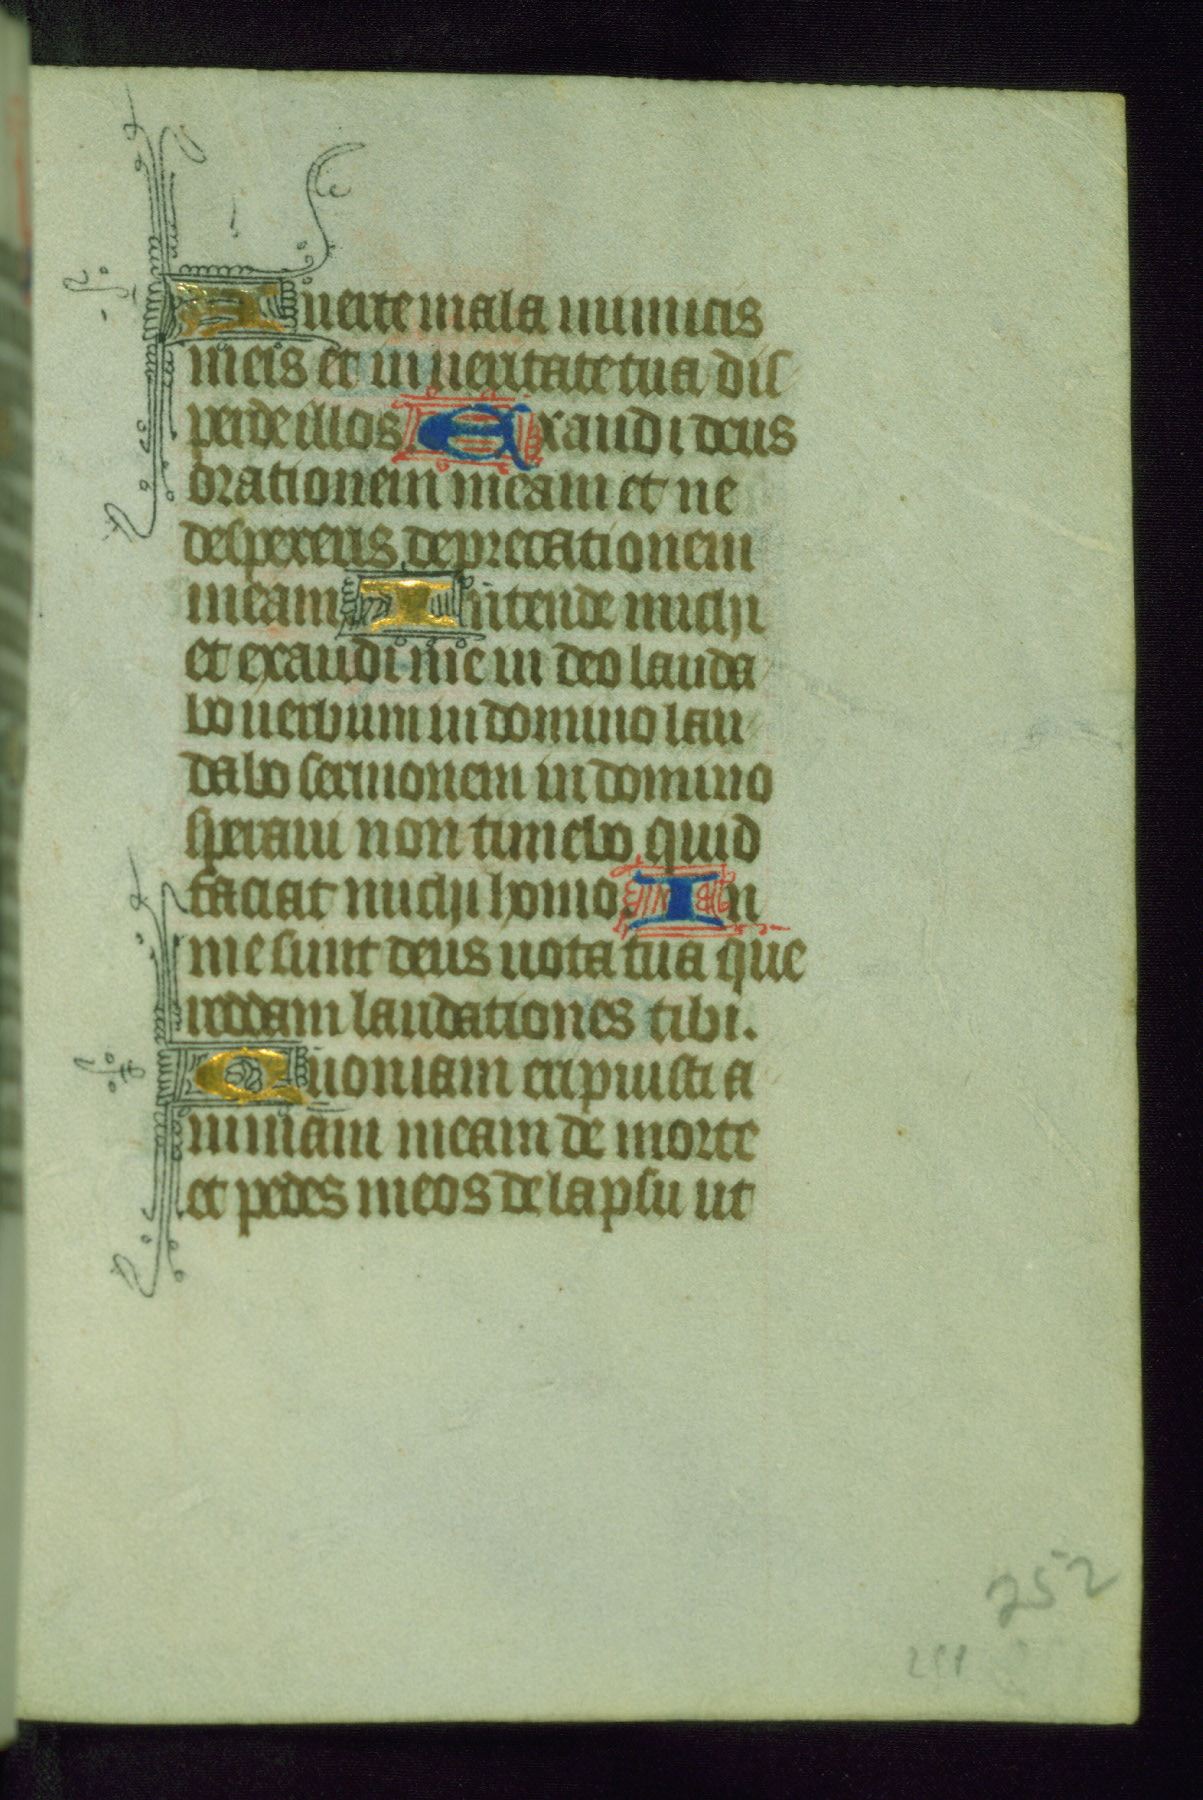 Auerte mala inimicis
meis et in ueritate tua dis
perde illos. Exaudi deus
orationem meam et ne
despexeris deprecationem
meam Intende michi
et exaudi me in deo lauda
bo uerbum in domino lau
dabo sermonem in domino
speraui non timebo quid
faciat michi homo. In
me sunt deus uota tua que
reddam laudationes tibi.
Quoniam eripuisti a
nimam meam de morte
et pedes meos de lapsu ut
252
251